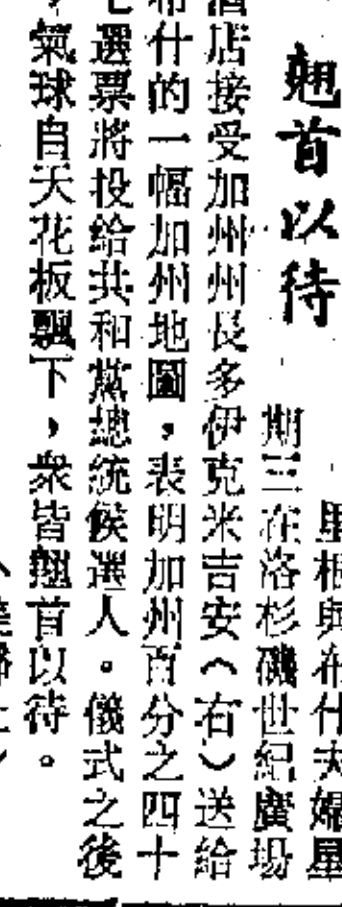 翹首以待
里根與布什夫婦星
期三在洛杉磯世紀廣場
酒店接受加州州長多伊克米吉安（右）送給
布什的一幅加州地圖，表明加州百分之四十
七選票將投給共和黨總統候選人。儀式之後
，氣球自天花板飄下，衆皆翹首以待。